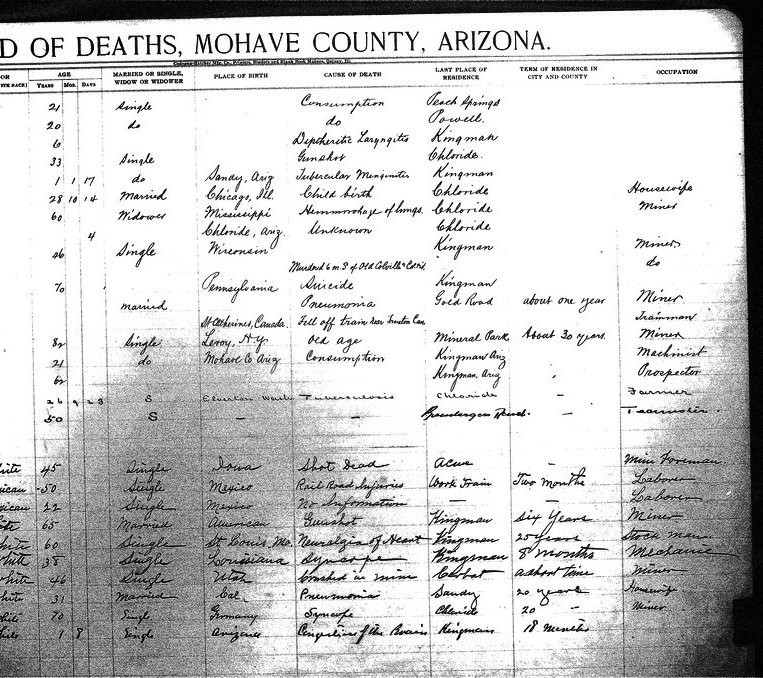 D OF DEATHS, MOHAVE COUNTY, ARIZONA.
OR AGE MARRIED OR SINGLE, WIDOW OR WIDOWER PLACE OF BIRTH CAUSE OF DEATH LAST PLACE OF RESIDENCE TERM OF RESIDENCE IN CITY AND COUNTY OCCUPATION
YEARS MOS. DAYS
21 Single Consumption Peach Springs
20 do do Powell.
6 Diptheritic Laryngitis Kingman
33 Single Gunshot Chloride.
1 1 17 do Sandy, Ariz Tubercular Menginitis Kingman
28 10 14 Married Chicago, Ill. Child birth Chloride Housewife
60 Widower Mississippi Hemmorohage of lungs. Chloride Miner
4 Chloride, Ariz. Unknown Chloride
46 Single Wisconsin Kingman Miner
6 m S of Old Colville do
70 Pennsylvania Suicide Kingman
married Pneumonia Gold Road about one year Miner
St Catherines, Canada. Fell off train near Trainman
82 Single Leroy, N.Y. Old age Mineral Park About 30 years. Miner
21 do Mohave Co Ariz Consumption Kingman Ariz Machinist
62 Kingman, Ariz Prospector
26 9 23 S Tuberculosis Chloride — Farmer
50 S — — — Teamster.
hite 45 Single Iowa Shot Dead Acme — Mine Foreman
xican 50 Single Mexico Rail Road Injuries Work Train Two Months Laborer
xican 22 Single Mexico No Information — — Laborer
ite 65 Married American Gunshot Kingman Six Years Miner
hite 60 Single St Louis, Mo. Neuralgia of Heart Kingman 25 years Stock Man
hite 38 Single Louisiana Syncope Kingman 8 months Mechanic
white 46 Single Utah Crushed in mine Cerbat a short time Miner
white 31 Married Cal. Pneumonia Sandy 20 years Housewife
hite 70 Single Germany Syncope Chloride 20 " Miner
hite 1 8 Single Arizona Congestion of the Brain Kingman 18 months